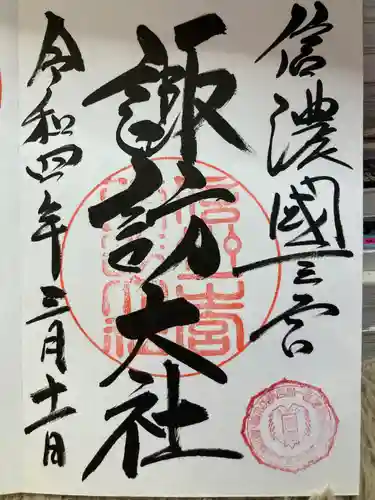 信濃國三宮
諏訪大社
令和四年三月十一日